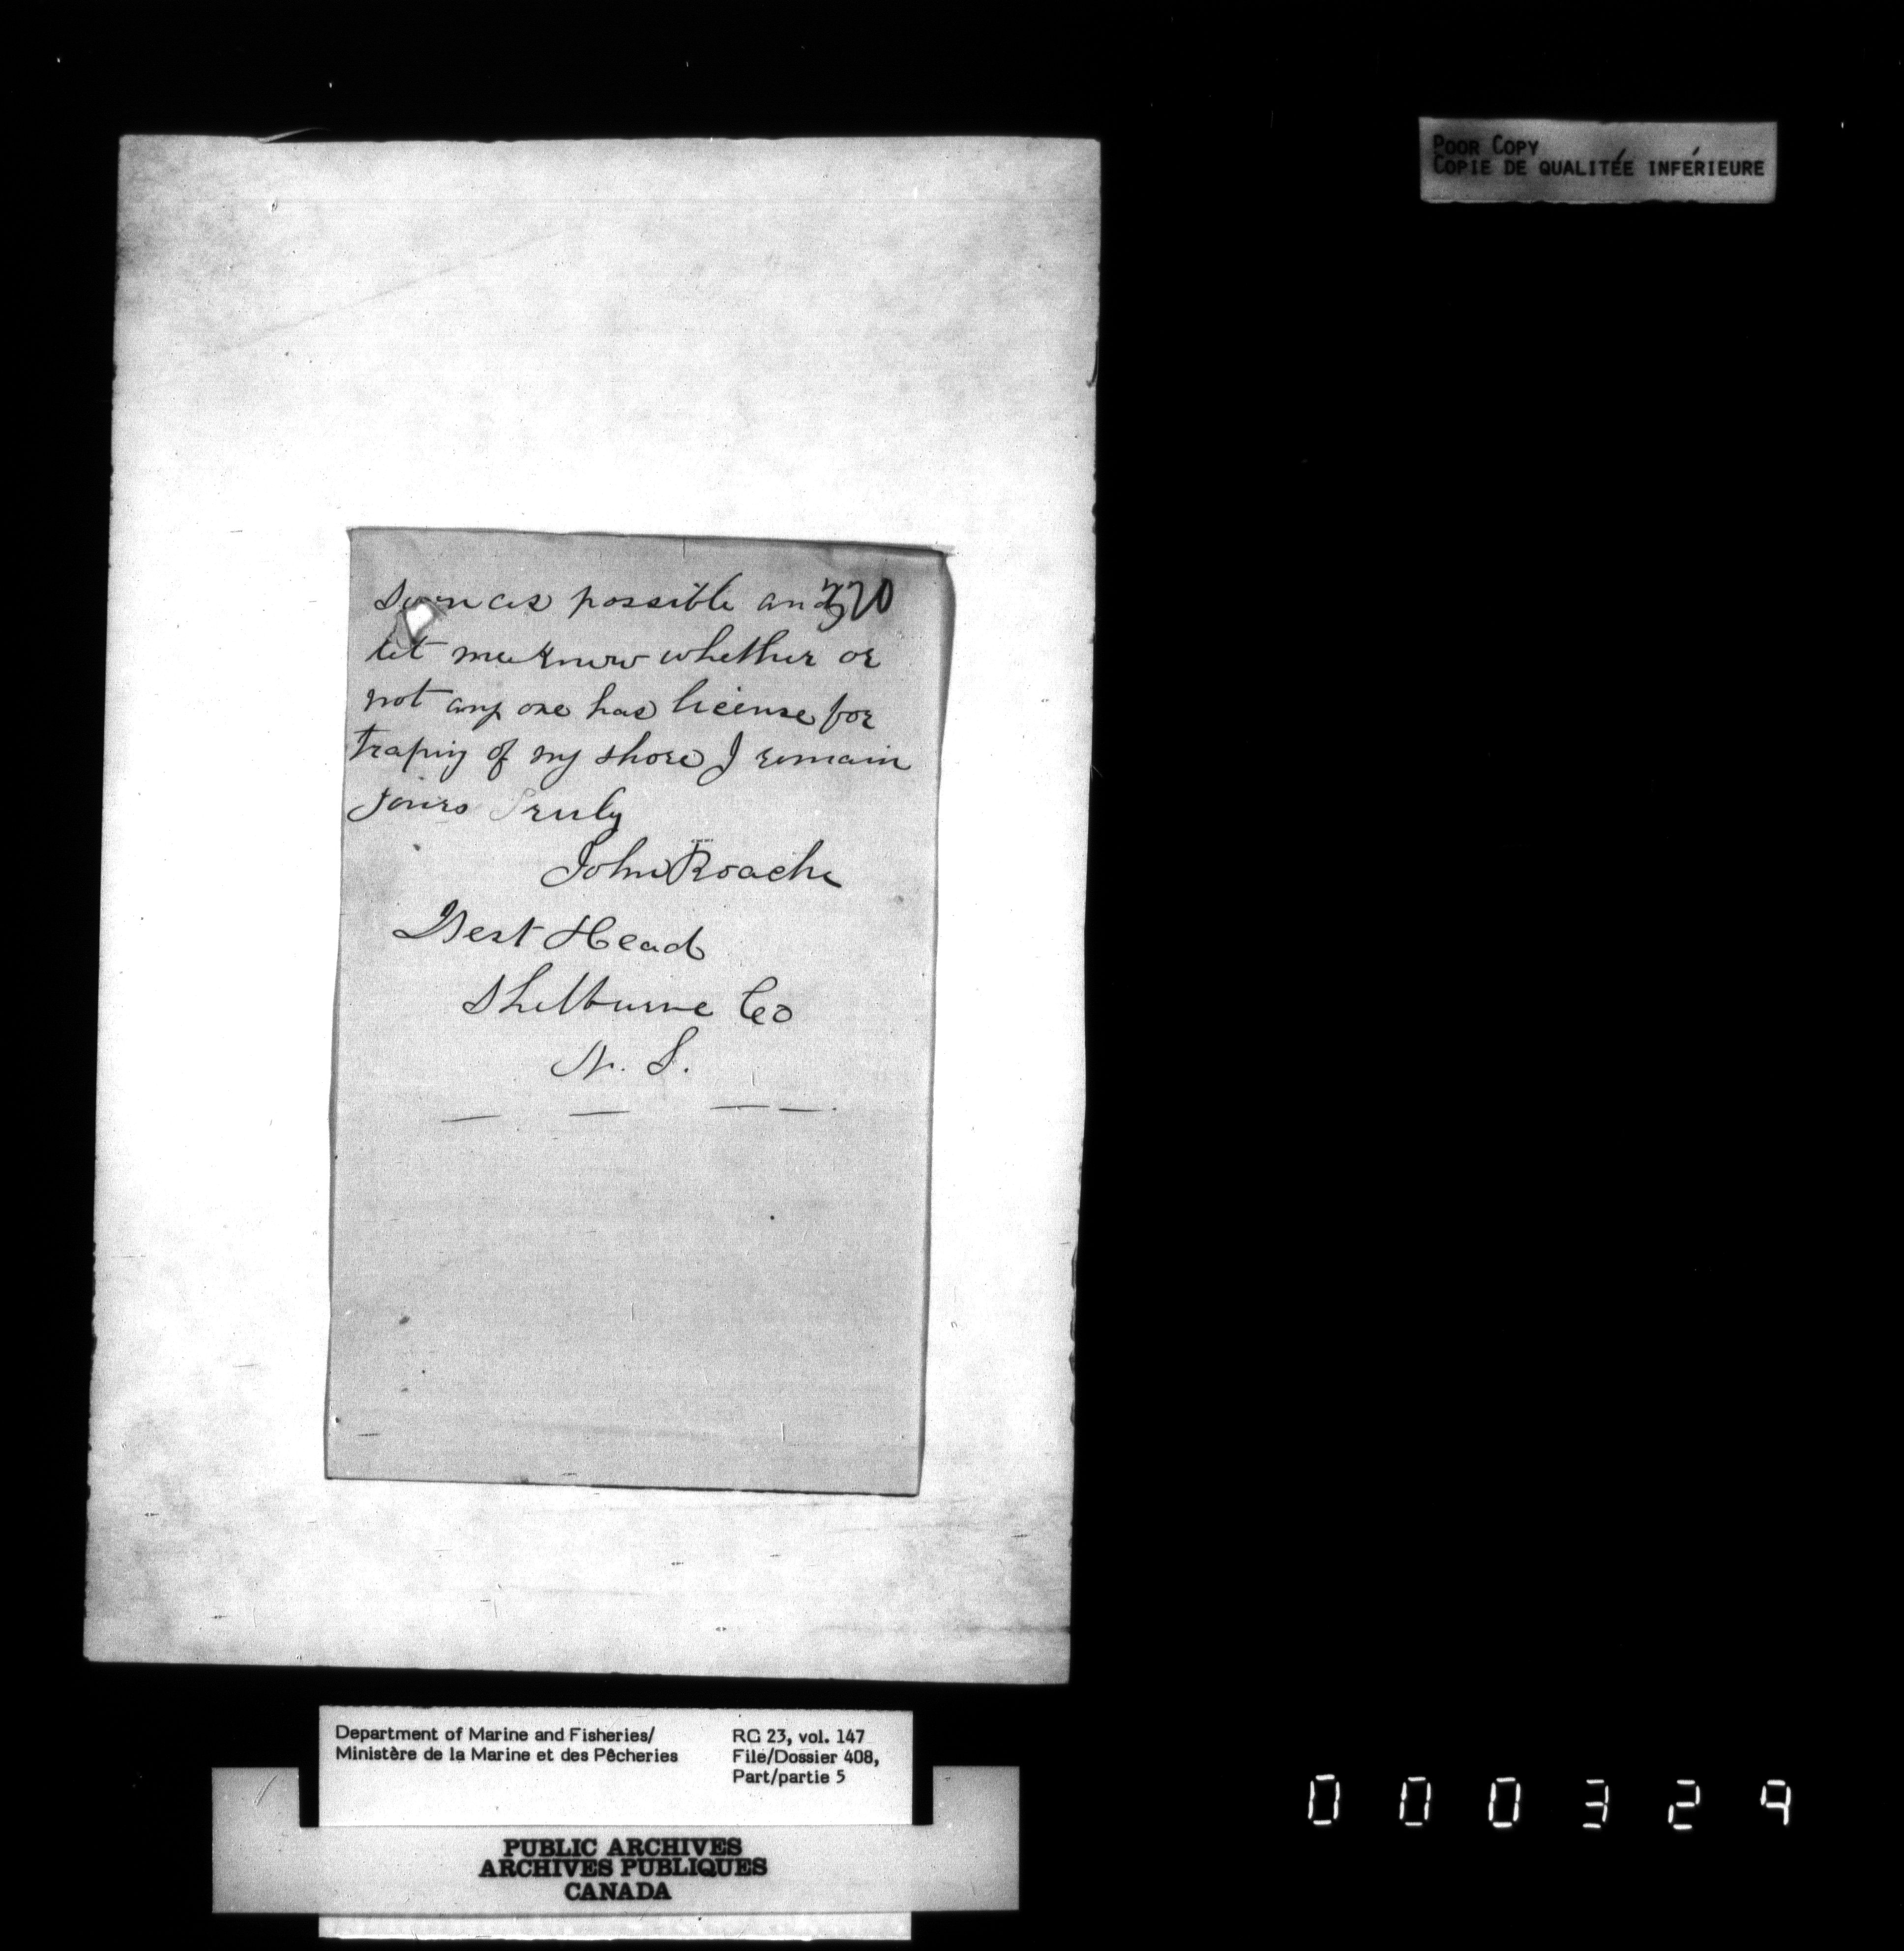 POOR COPY
COPIE DE QUALITÉE INFÉRIEURE
370
soon as possible and
let me know whether or
not any one has license for
traping of my shore I remain
yours Truly
John Roache
West Head
Shelburne Co
N. S.
Department of Marine and Fisheries/
Ministère de la Marine et des Pêcheries
RG 23, vol. 147
File/Dossier 408,
Part/partie 5
PUBLIC ARCHIVES
ARCHIVES PUBLIQUES
CANADA
000329